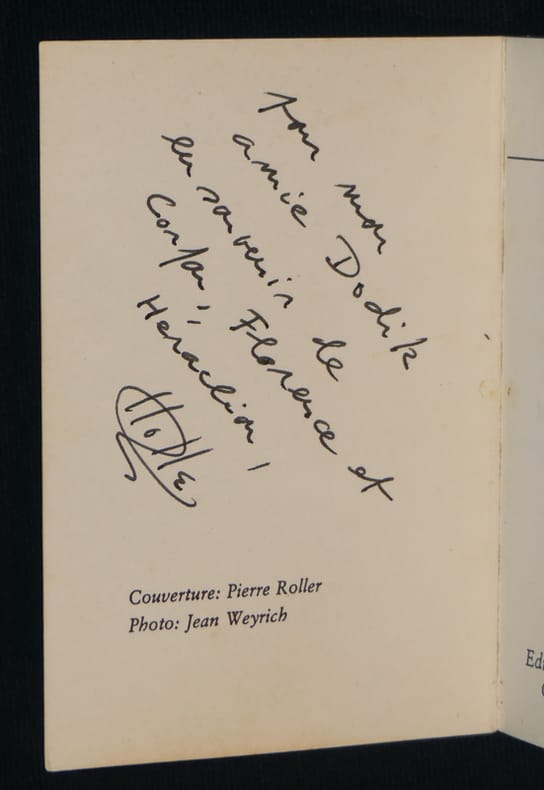 Pour mon
amie Dodik
en souvenir de
Corfou, Florence et
Heraclion,
Couverture: Pierre Roller
Photo: Jean Weyrich